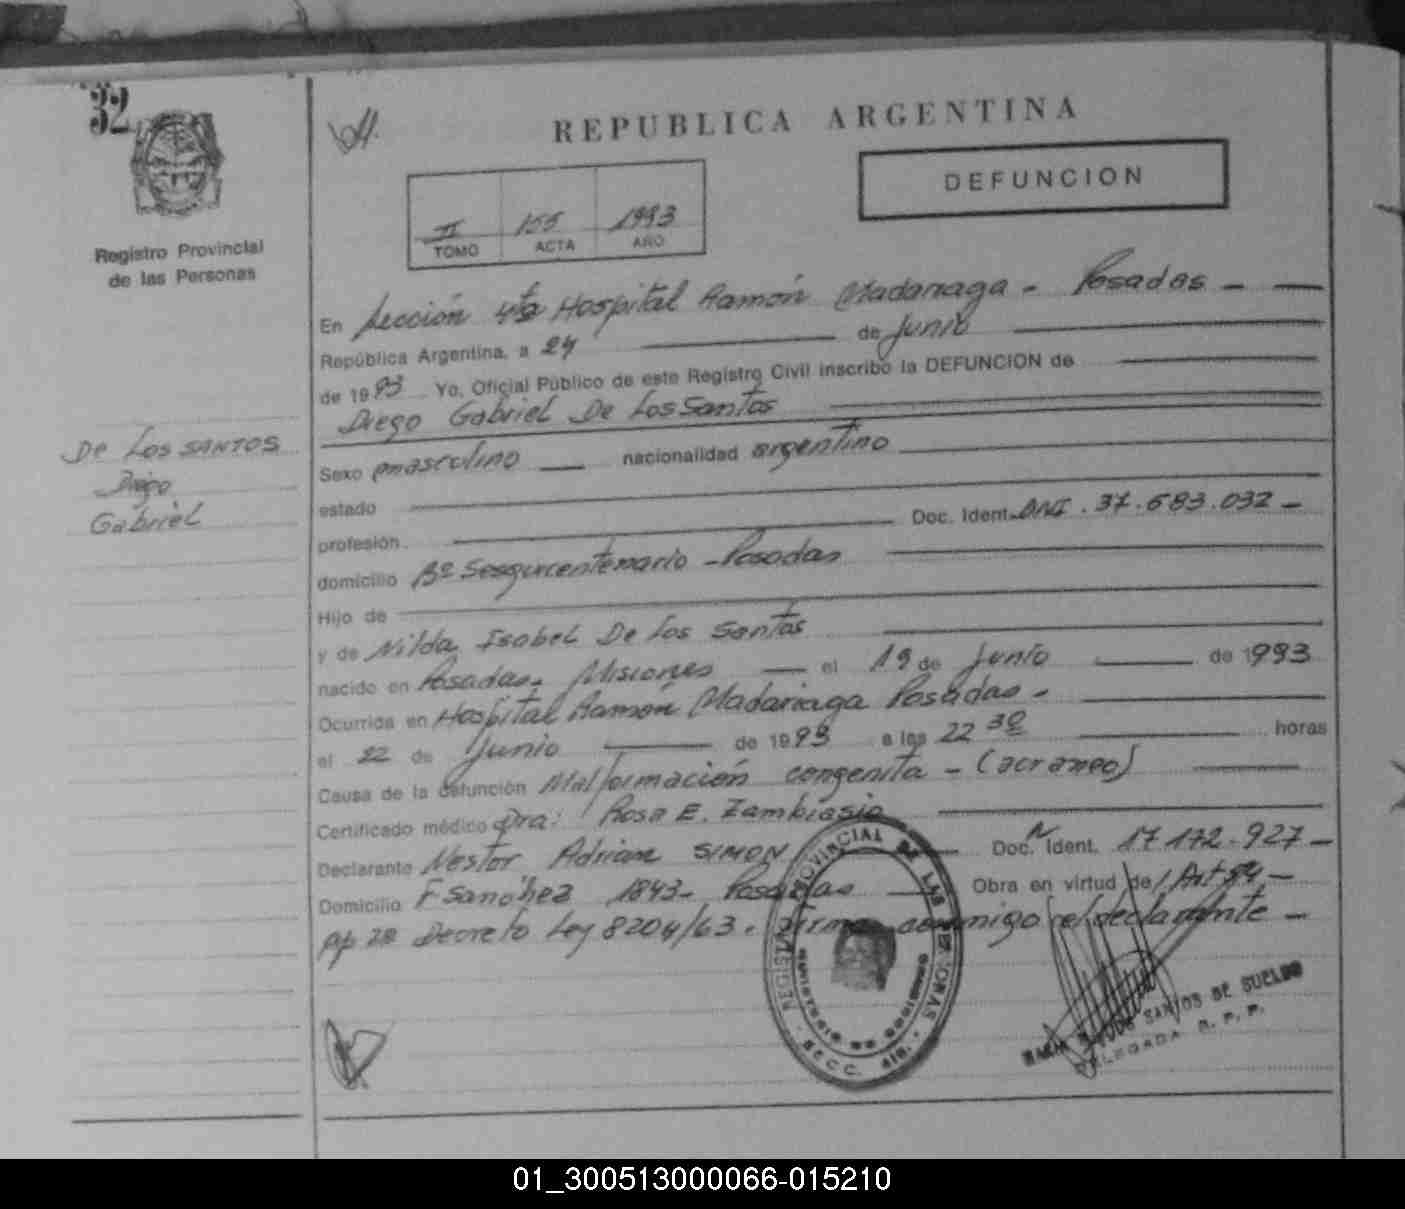 32
REPUBLICA ARGENTINA
DEFUNCION
II 155 1993
TOMO ACTA AÑO
Registro Provincial
de las Personas
En Sección 4ta Hospital Ramón Madariaga - Posadas -
República Argentina, a 24 de junio
de 1993 Yo, Oficial Público de este Registro Civil inscribo la DEFUNCION de
Diego Gabriel De Los Santos
De Los SANTOS
Diego
Gabriel
Sexo masculino nacionalidad argentino
estado
profesión Doc. Ident. DNI. 37.683.032 -
domicilio Bº Sesquicentenario - Posadas
Hijo de
y de Nilda Isabel De Los Santos
nacido en Posadas - Misiones el 19 de junio de 1993
Ocurrida en Hospital Ramón Madariaga Posadas -
el 22 de junio de 1993 a las 22 30 horas
Causa de la defunción Malformación congenita - (acraneo)
Certificado médico Dra: Rosa E. Zambiasio
Declarante Nestor Adrian SIMON Doc. Ident. 17.172.927 -
Domicilio F Sanchez 1843 - Posadas Obra en virtud de Art 54 -
Decreto Ley 8204/63. firma conmigo el declarante -
REGISTRO PROVINCIAL DE LAS PERSONAS
MINISTERIO DE GOBIERNO
SECC. 4ta.
SANTOS DE SUELDO
DELEGADA R. P. P.
01_300513000066-015210